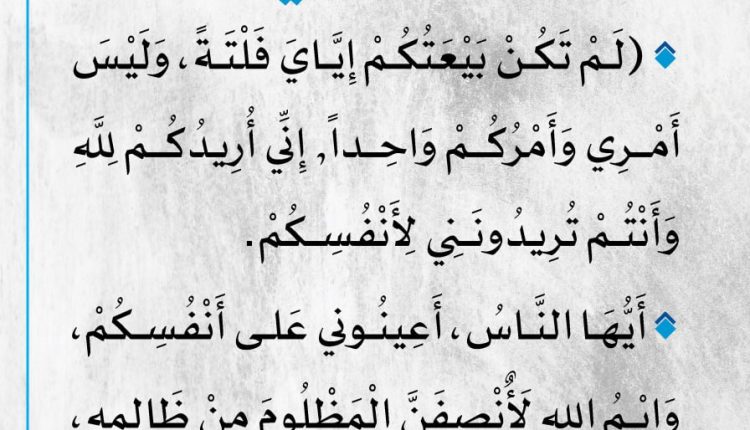 (لَمْ تَكُنْ بَيْعَتُكُمْ إِيَّايَ فَلْتَةً، وَلَيْسَ
أَمْرِي وَأَمْرُكُمْ وَاحِداً, إِنِّي أُرِيدُكُمْ لِلَّهِ
وَأَنْتُمْ تُرِيدُونَنِي لِأَنْفُسِكُمْ.
أَيُّهَا النَّاسُ، أَعِينُوني عَلى أَنْفُسِكُمْ،
وَايْمُ اللهِ لَأُنْصِفَنَّ الْمَظْلُومَ مِنْ ظَالِمِهِ،